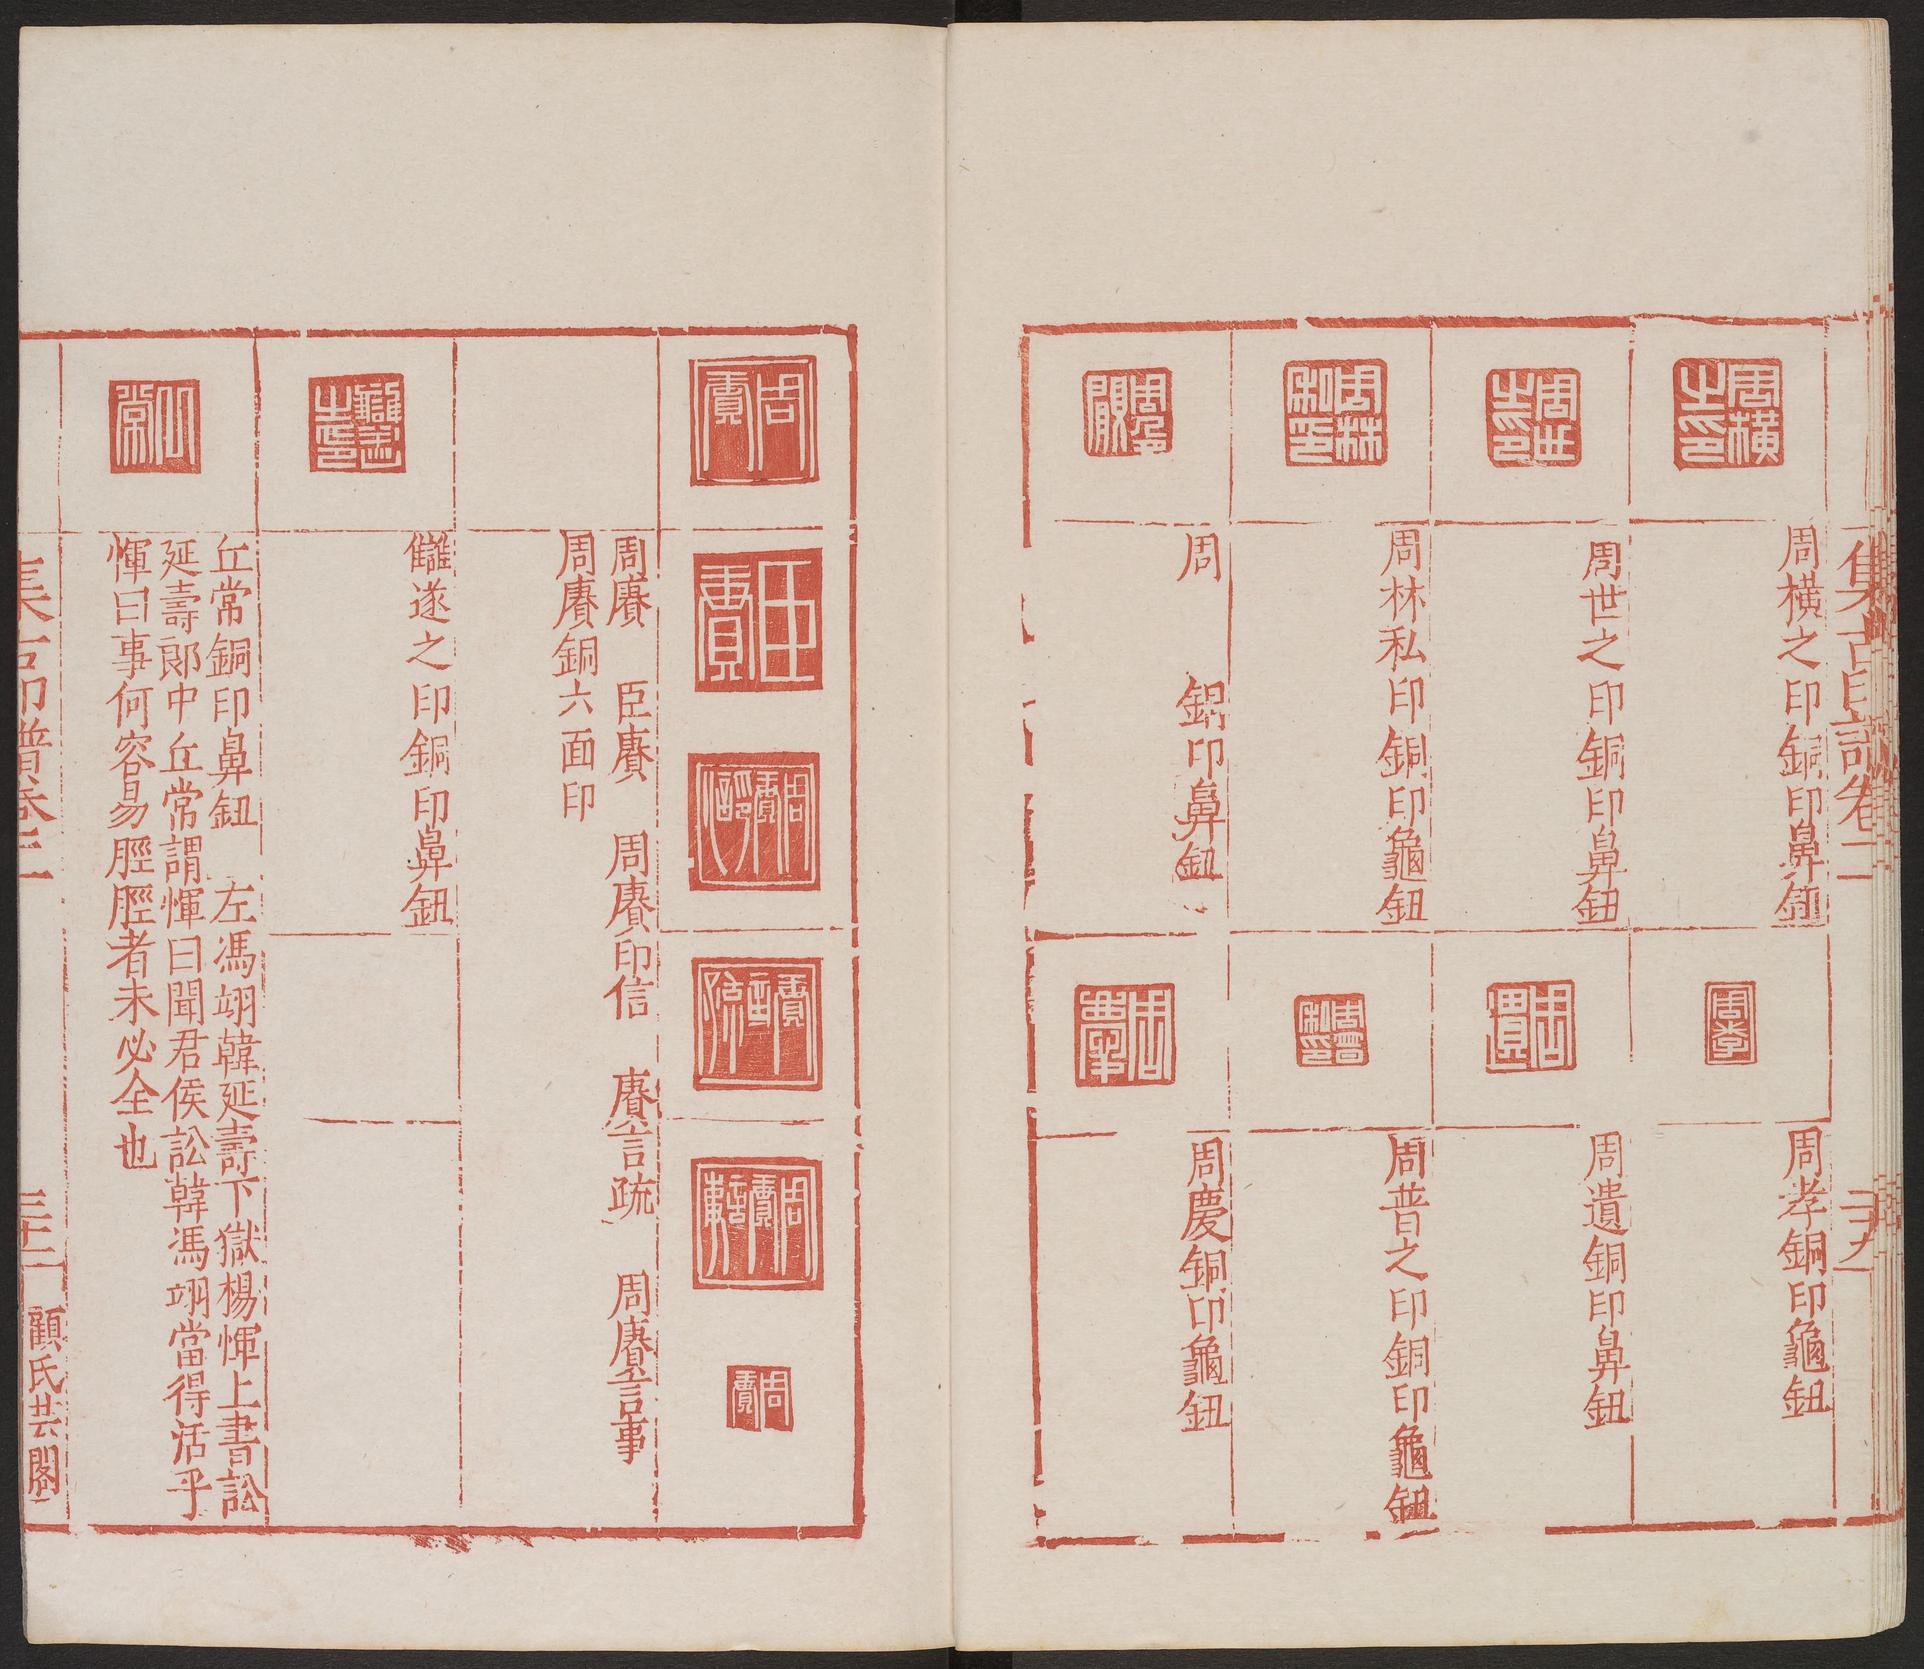 集古印譜卷二
二十九
周橫之印銅印鼻鈕
周孝銅印龜鈕
周世之印銅印鼻鈕
周遺銅印鼻鈕
周林私印銅印龜鈕
周普之印銅印龜鈕
周 銅印鼻鈕
周慶銅印龜鈕
周賡 臣賡 周賡印信 賡言疏 周賡言事
周賡銅六面印
讎遂之印銅印鼻鈕
丘常銅印鼻鈕 左馮翊韓延壽下獄楊惲上書訟
延壽郎中丘常謂惲曰聞君侯訟韓馮翊當得活乎
惲曰事何容易脛脛者未必全也
集古印譜卷二
顧氏芸閣